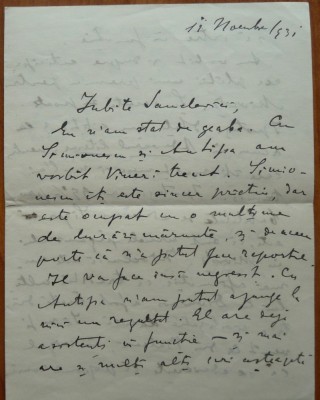 Noembre 931
Iubite
Eu n'am stat de geaba. Cu
Simionescu și Antipa am
vorbit Vineri trecut. Simio-
nescu iți este sincer prietin, dar
este ocupat cu o mulțime
de lucrări mărunte, și de aceea
poate că n'a putut face raportul.
Il va face însă negreșit. Cu
Antipa n'am putut ajunge la
nici un rezultat. El are deja
asistenți în funcție – și mai
are și mulți alții cari așteaptă